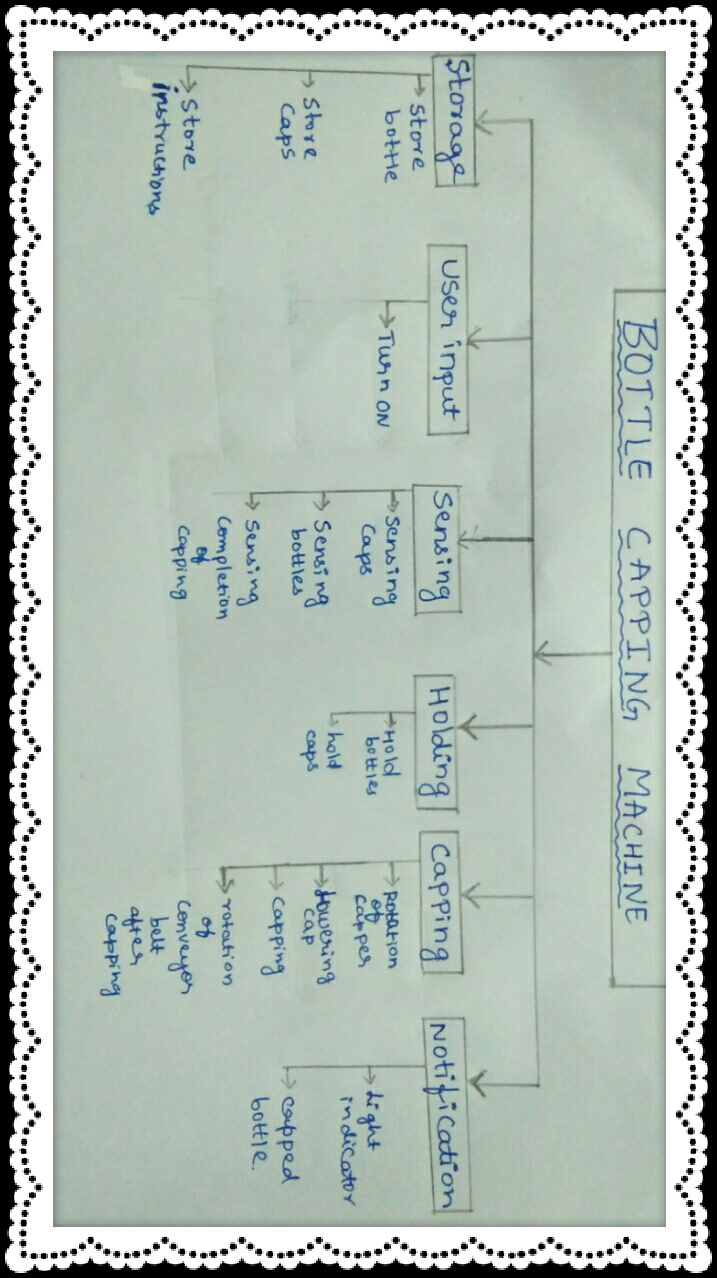 BOTTLE CAPPING MACHINE
Storage
Store
bottle
Store
Caps
Store
instructions
User input
Turn ON
Sensing
Sensing
Caps
Sensing
bottles
Sensing
Completion
of
Capping
Holding
Hold
bottles
hold
caps
Capping
Rotation
of
Capper
Lowering
cap
Capping
rotation
of
Conveyor
belt
after
Capping
Notification
Light
indicator
capped
bottle.